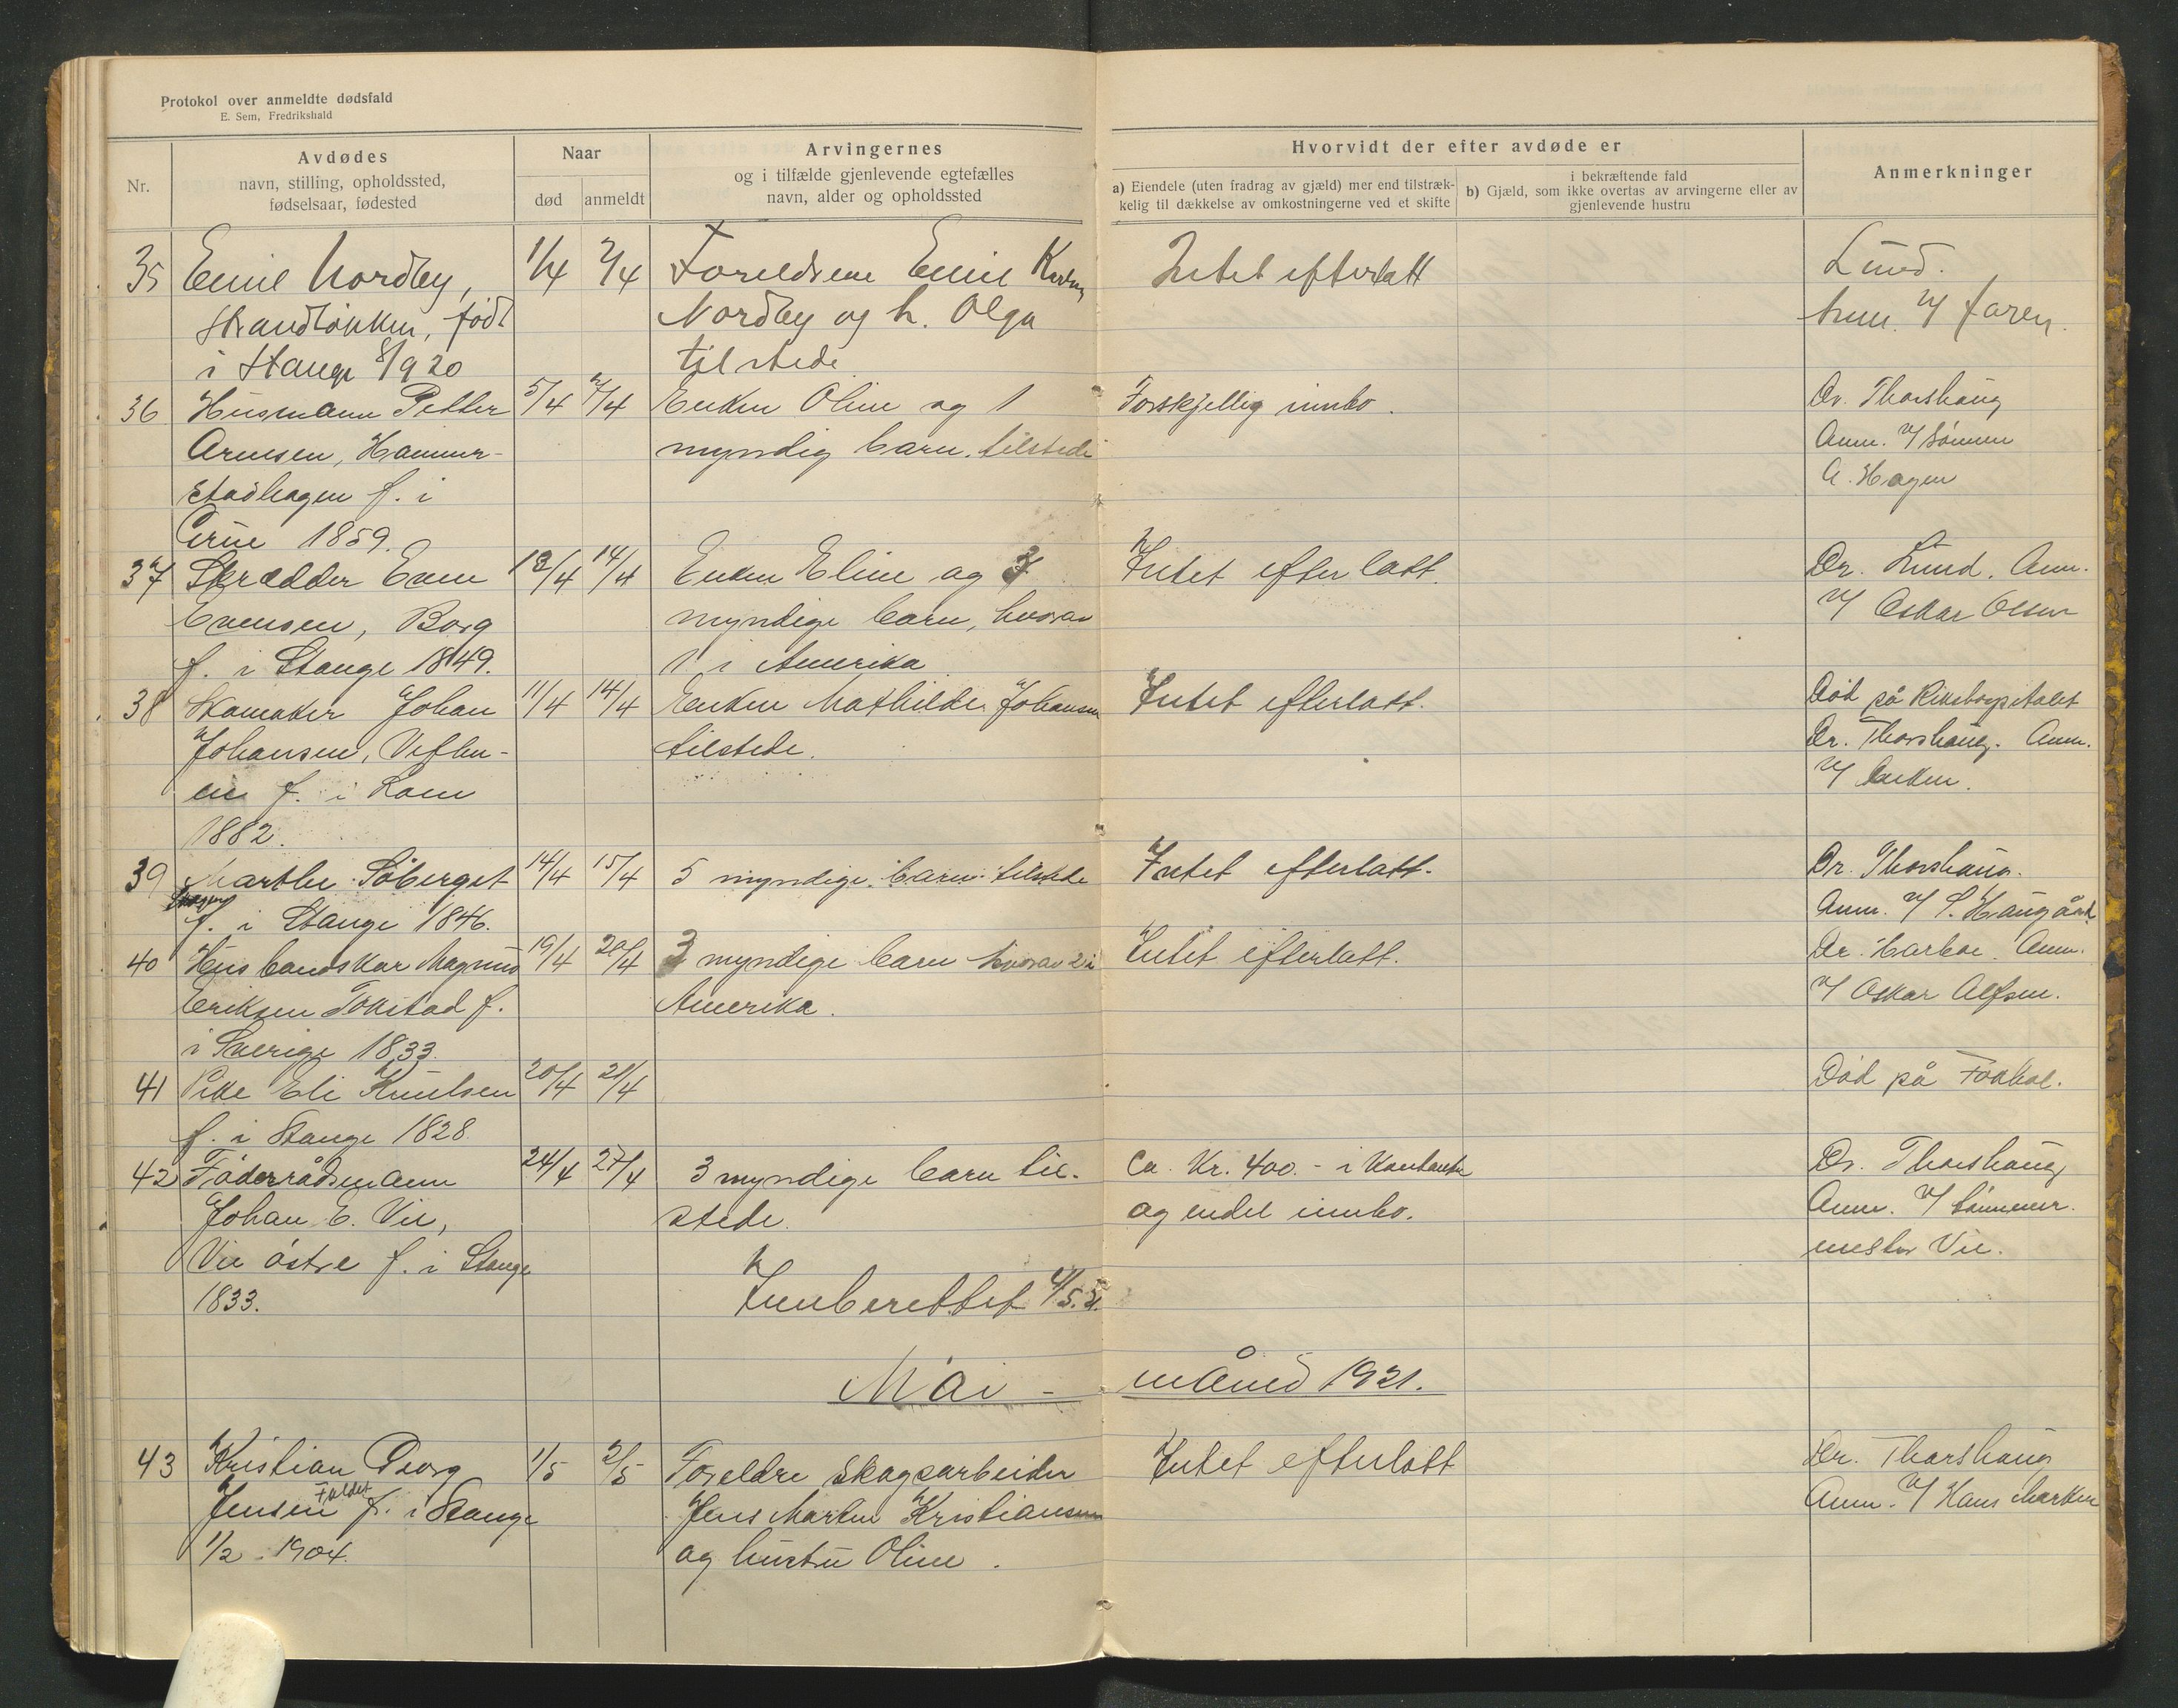 Protokol over anmeldte dødsfald
E. Sem, Fredrikshald
Nr.
Avdødes
navn, stilling, opholdssted,
fødselsaar, fødested
Naar
død
anmeldt
Arvingernes
og i tilfælde gjenlevende egtefælles
navn, alder og opholdssted
Hvorvidt der efter avdøde er
a) Eiendele (uten fradrag av gjæld) mer end tilstræk-
kelig til dækkelse av omkostningerne ved et skifte
i bekræftende fald
b) Gjæld, som ikke overtas av arvingerne eller av
gjenlevende hustru
Anmerkninger
35 Emil Nordby, 1/4 2/4 Foreldrene Emil Intet efterlatt Lund.
Strandløkken, født Nordby og h. Olga Anm. v/ faren.
i Stange 8/9 20 tilstede
36 Husmann Petter 5/4 7/4 Enken Oline og 1 Forskjellig innbo. Dr. Thorshaug
Arnesen, Hammer- myndig barn tilstede Anm. v/ sønnen
stadhagen f. i A. Hagen
1859.
37 Skrædder Even 13/4 14/4 Enken Eline og 3 Intet efterlatt. Dr. Lund. Anm.
Evensen, Borg myndige barn, hvorav v/ Oskar Olsen
f. i Stange 1849. 1 i Amerika
38 Skomaker Johan 11/4 14/4 Enken Mathilde Johansen Intet efterlatt. Død på Rikshospitalet
Johansen, tilstede. Dr. Thorshaug. Anm.
f. i Lom v/ enken.
1882.
39 Marthe Søberget 14/4 15/4 5 myndige barn tilstede Intet efterlatt. Dr. Thorshaug.
f. i Stange 1846. Anm. v/
40 Husbandskar Magnus 19/4 20/4 3 myndige barn hvorav 2 i Intet efterlatt. Dr. Harboe. Anm.
Eriksen Tokstad f. Amerika. v/ Oskar Alfsen.
i Sverige 1833.
41 Pike Eli Knutsen 20/4 21/4 Død på Fokhol.
f. i Stange 1828.
42 Føderrådsmann 24/4 27/4 3 myndige barn til- Ca. Kr. 400.- i kontanter Dr. Thorshaug
Johan E. Vie, stede. og endel innbo. Anm. v/
Vie østre f. i Stange mester Vie.
1833. Innberettet 4/5.21.
Mai - måned 1921.
43 Kristian Georg 1/5 2/5 Foreldre skogsarbeider Intet efterlatt Dr. Thorshaug
Jensen f. i Stange Jens Martin Kristiansen Anm. v/ Hans
1/2 1904. og hustru Oline.